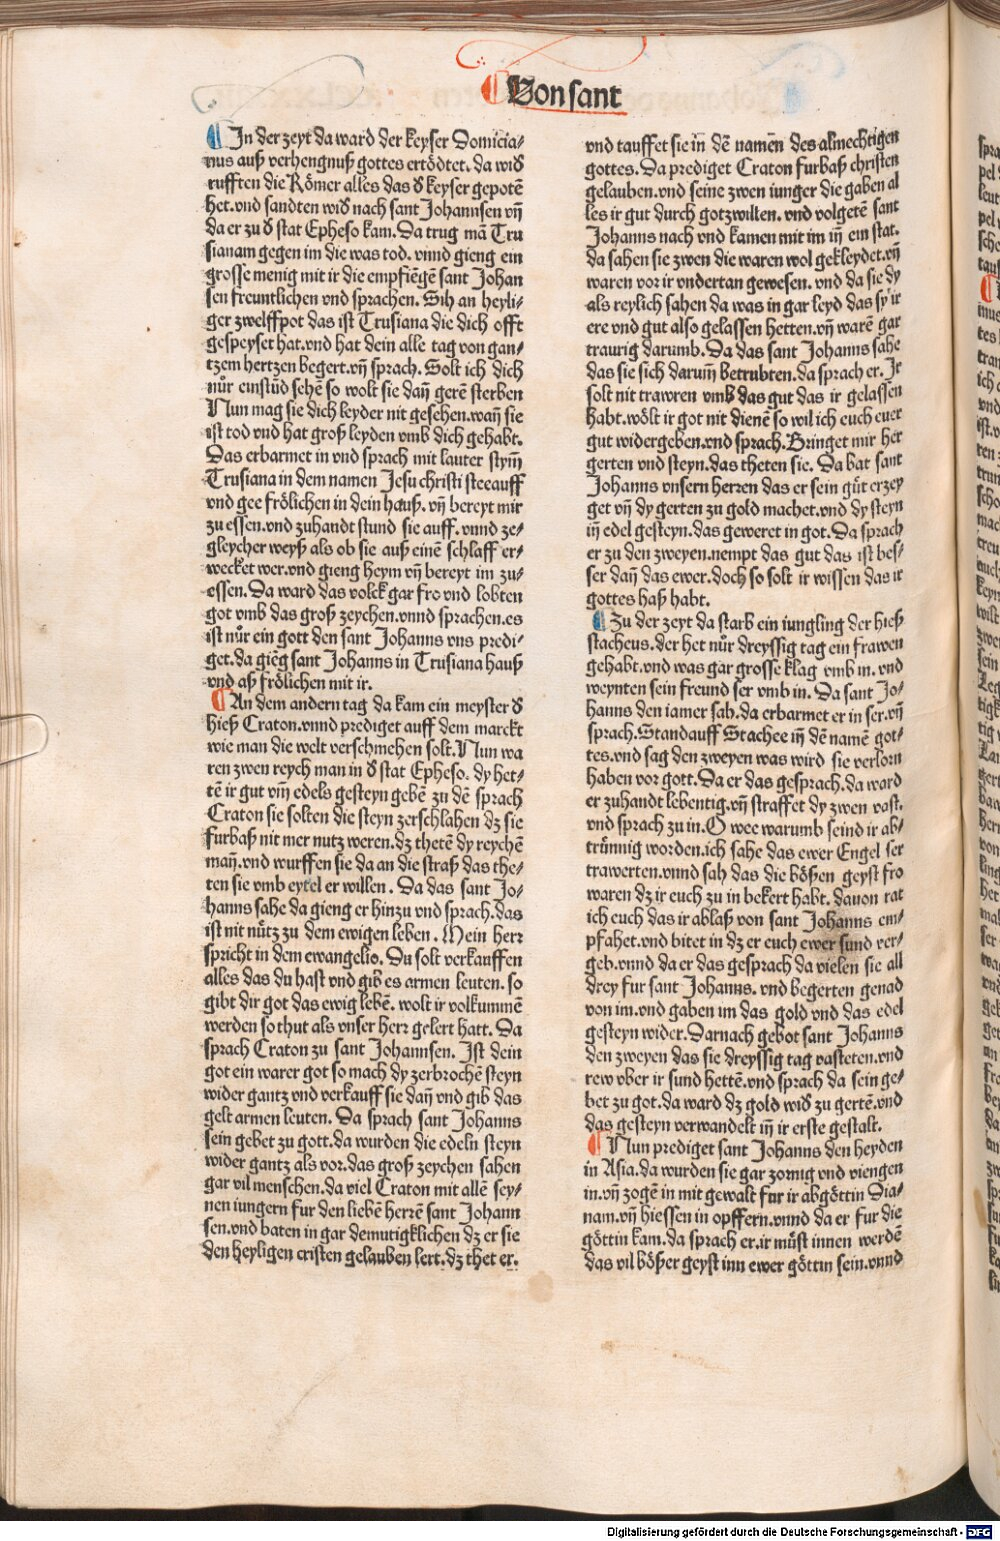 Von sant
In der zeyt da ward der keyser Domicia⸗
nus auß verhengnuß gottes ertödtet. da wid
rufften die Römer alles das d̕ keyser gepotē
het. vnd sandten wid̕ nach sant Johannsen vn̄
da er zu d̕ stat Epheso kam. Da trug mā Tru
sianam gegen im die was tod. vnnd gieng ein
grosse menig mit ir die empfiēgē sant Johan
sen freuntlichen vnd sprachen. Sih an heyli⸗
ger zwelffpot das ist Trusiana die dich offt
gespeyset hat. vnd hat dein alle tag von gan⸗
tzem hertzen begert. vn̄ sprach. Solt ich dich
nůr einstūd sehē so wolt sie dan̄ gerē sterben
Nun mag sie dich leyder nit gesehen. wan̄ sie
ist tod vnd hat groß leyden vmb dich gehabt.
Das erbarmet in vnd sprach mit lauter stym̄
Trusiana in dem namen Jesu christi steeauff
vnd gee frölichen in dein hauß. vn̄ bereyt mir
zu essen. vnd zuhandt stund sie auff. vnnd ze⸗
gleycher weyß als ob sie auß einē schlaff er⸗
wecket wer. vnd gieng heym vn̄ bereyt im zu⸗
essen. Da ward das volck gar fro vnd lobten
got vmb das groß zeychen. vnnd sprachen. es
ist nůr ein gott den sant Johanns vns predi⸗
get. da giēg sant Johanns in Trusiana hauß
vnd aß frölichen mit ir.
An dem andern tag da kam ein meyster d̕
hieß Craton. vnnd prediget auff dem marckt
wie man die welt verschmehen solt. Nun wa
ren zwen reych man in d̕ stat Epheso. dy het⸗
tē ir gut vm̄ edels gesteyn gebē zu dē sprach
Craton sie solten die steyn zerschlahen dz sie
furbaß nit mer nutz weren. dz thetē dy reychē
man̄. vnd wurffen sie da an die straß das the⸗
ten sie vmb eytel er willen. Da das sant Jo⸗
hanns sahe da gieng er hinzu vnd sprach. das
ist nit nütz zu dem ewigen leben. Mein herr
spricht in dem ewangelio. Du solt verkauffen
alles das du hast vnd gib es armen leuten. so
gibt dir got das ewig lebē. wolt ir volkummē
werden so thut als vnser herr gelert hatt. Da
sprach Craton zu sant Johannsen. Ist dein
got ein warer got so mach dy zerbrochē steyn
wider gantz vnd verkauff sie dan̄ vnd gib das
gelt armen leuten. Da sprach sant Johanns
sein gebet zu gott. da wurden die edeln steyn
wider gantz als vor. das groß zeychen sahen
gar vil menschen. da viel Craton mit allē sey⸗
nen iungern fur den liebē herrē sant Johann
sen. vnd baten in gar demutigklichen dz er sie
den heyligen cristen gelauben lert. dz thet er.
vnd tauffet sie in dē namen des almechtigen
gottes. Da prediget Craton furbaß christen
gelauben. vnd seine zwen iunger die gaben al
les ir gut durch gotzwillen. vnd volgetē sant
Johanns nach vnd kamen mit im in̄ ein stat.
da sahen sie zwen die waren wol gekleydet. vn̄
waren vor ir vndertan gewesen. vnd da sie dy
als reylich sahen da was in gar leyd das sy ir
ere vnd gut also gelassen hetten. vn̄ warē gar
traurig darumb. Da das sant Johanns sahe
das sie sich darum̄ betrubten. da sprach er. Jr
solt nit trawren vmb das gut das ir gelassen
habt. wölt ir got nit dienē so wil ich euch euer
gut widergeben. vnd sprach. Bringet mir her
gerten vnd steyn. das theten sie. Da bat sant
Johanns vnsern herren das er sein gůt erzey
get vn̄ dy gerten zu gold machet. vnd dy steyn
in̄ edel gesteyn. das geweret in got. Da sprach
er zu den zweyen. nempt das gut das ist bes⸗
ser dan̄ das ewer. doch so solt ir wissen das ir
gottes haß habt.
Zu der zeyt da starb ein iungling der hieß
stacheus. der het nůr dreyssig tag ein frawen
gehabt. vnd was gar grosse klag vmb in. vnd
weynten sein freund ser vmb in. Da sant Jo⸗
hanns den iamer sah. da erbarmet er in ser. vn̄
sprach. Standauff Stachee in̄ dē namē got⸗
tes. vnd sag den zweyen was wird sie verlorn
haben vor gott. Da er das gesprach. da ward
er zuhandt lebentig. vn̄ straffet dy zwen vast.
vnd sprach zu in. O wee warumb seind ir ab⸗
trünnig worden. ich sahe das ewer Engel ser
trawerten. vnnd sah das die bößen geyst fro
waren dz ir euch zu in bekert habt. dauon rat
ich euch das ir ablaß von sant Johanns em⸗
pfahet. vnd bitet in dz er euch ewer sund ver⸗
geb. vnnd da er das gesprach da vielen sie all
drey fur sant Johanns. vnd begerten genad
von im. vnd gaben im das gold vnd das edel
gesteyn wider. Darnach gebot sant Johanns
den zweyen das sie dreyssig tag vasteten. vnd
rew vber ir sund hettē. vnd sprach da sein ge⸗
bet zu got. da ward dz gold wid̕ zu gertē. vnd
das gesteyn verwandelt in̄ ir erste gestalt.
Nun prediget sant Johanns den heyden
in Asia. da wurden sie gar zornig vnd viengen
in. vn̄ zogē in mit gewalt fur ir abgöttin Dia⸗
nam. vn̄ hiessen in opffern. vnnd da er fur die
göttin kam. da sprach er. ir můst innen werdē
das vil bößer geyst inn ewer göttin sein. vnnd
Digitalisierung gefördert durch die Deutsche Forschungsgemeinschaft - DFG